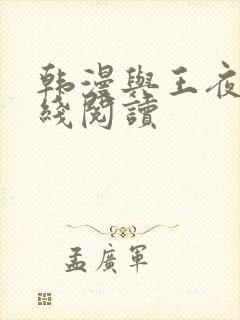 韩漫與王夜
綫閱讀
孟廣軍